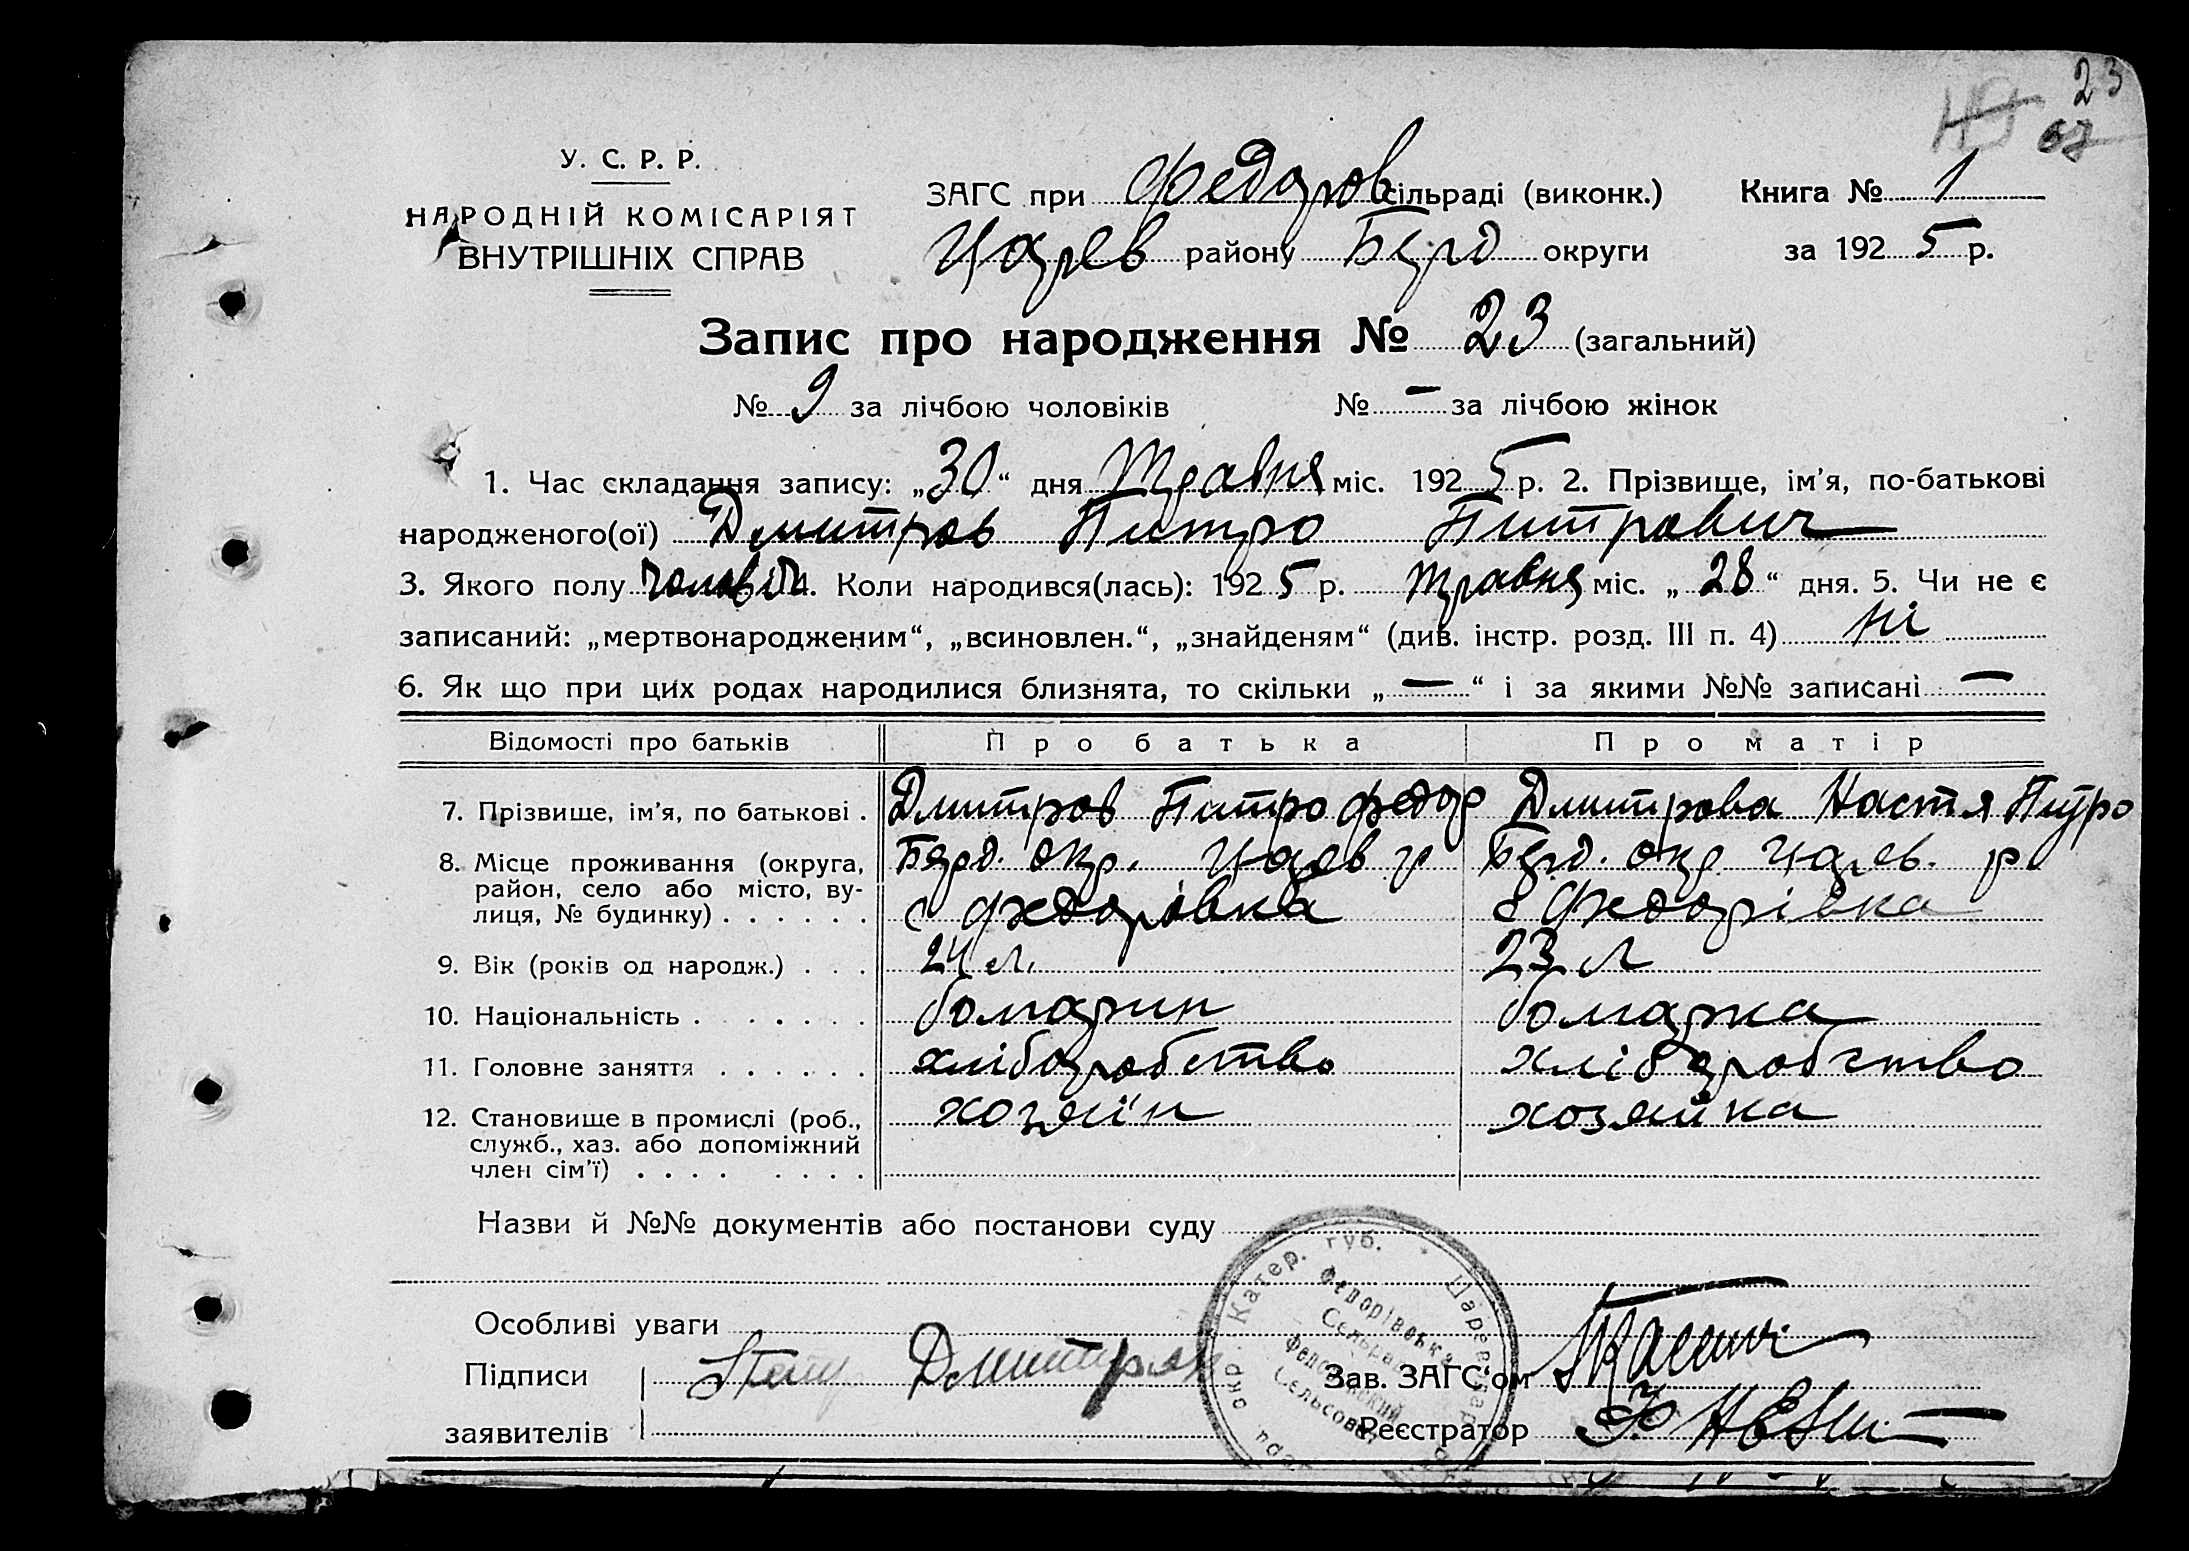 23
67
У. С. Р. Р.
НАРОДНІЙ КОМІСАРІЯТ
ВНУТРІШНІХ СПРАВ
ЗАГС при Федоров сільраді (виконк.) Книга № 1
Царев району Берд округи за 1925 р.
Запис про народження № 23 (загальний)
№ 9 за лічбою чоловіків № — за лічбою жінок
1. Час складання запису: „30“ дня Травня міс. 1925 р. 2. Прізвище, ім'я, по-батькові
народженого(ої) Дмитров Питро Питрович
3. Якого полу чоловіч 4. Коли народився(лась): 1925 р. травня міс. „28“ дня. 5. Чи не є
записаний: „мертвонародженим“, „всиновлен.“, „знайденям“ (див. інстр. розд. III п. 4) ні
6. Як що при цих родах народилися близнята, то скільки „—“ і за якими №№ записані —
Відомості про батьків Про батька Про матір
7. Прізвище, ім'я, по батькові . Дмитров Питро Федор Дмитрова Настя Питро
8. Місце проживання (округа, Берд. окр. Царев р Берд. окр Царев. р
район, село або місто, ву-
лиця, № будинку) . . . . . . с Федорівка с Федорівка
9. Вік (років од народж.) . . . 24 л. 23 л
10. Національність . . . . . . . болгарин болгарка
11. Головне заняття . . . . . . хліборобство хліборобство
12. Становище в промислі (роб., хозяїн хозяйка
служб., хаз. або допоміжний
член сім'ї) . . . . . . . .
Назви й №№ документів або постанови суду
Катер. губ. Царев
Федорівська
Сельрада
Федоровский
Сельсовет
Особливі уваги
Підписи Дмитров Зав. ЗАГС'ом
заявителів Реєстратор